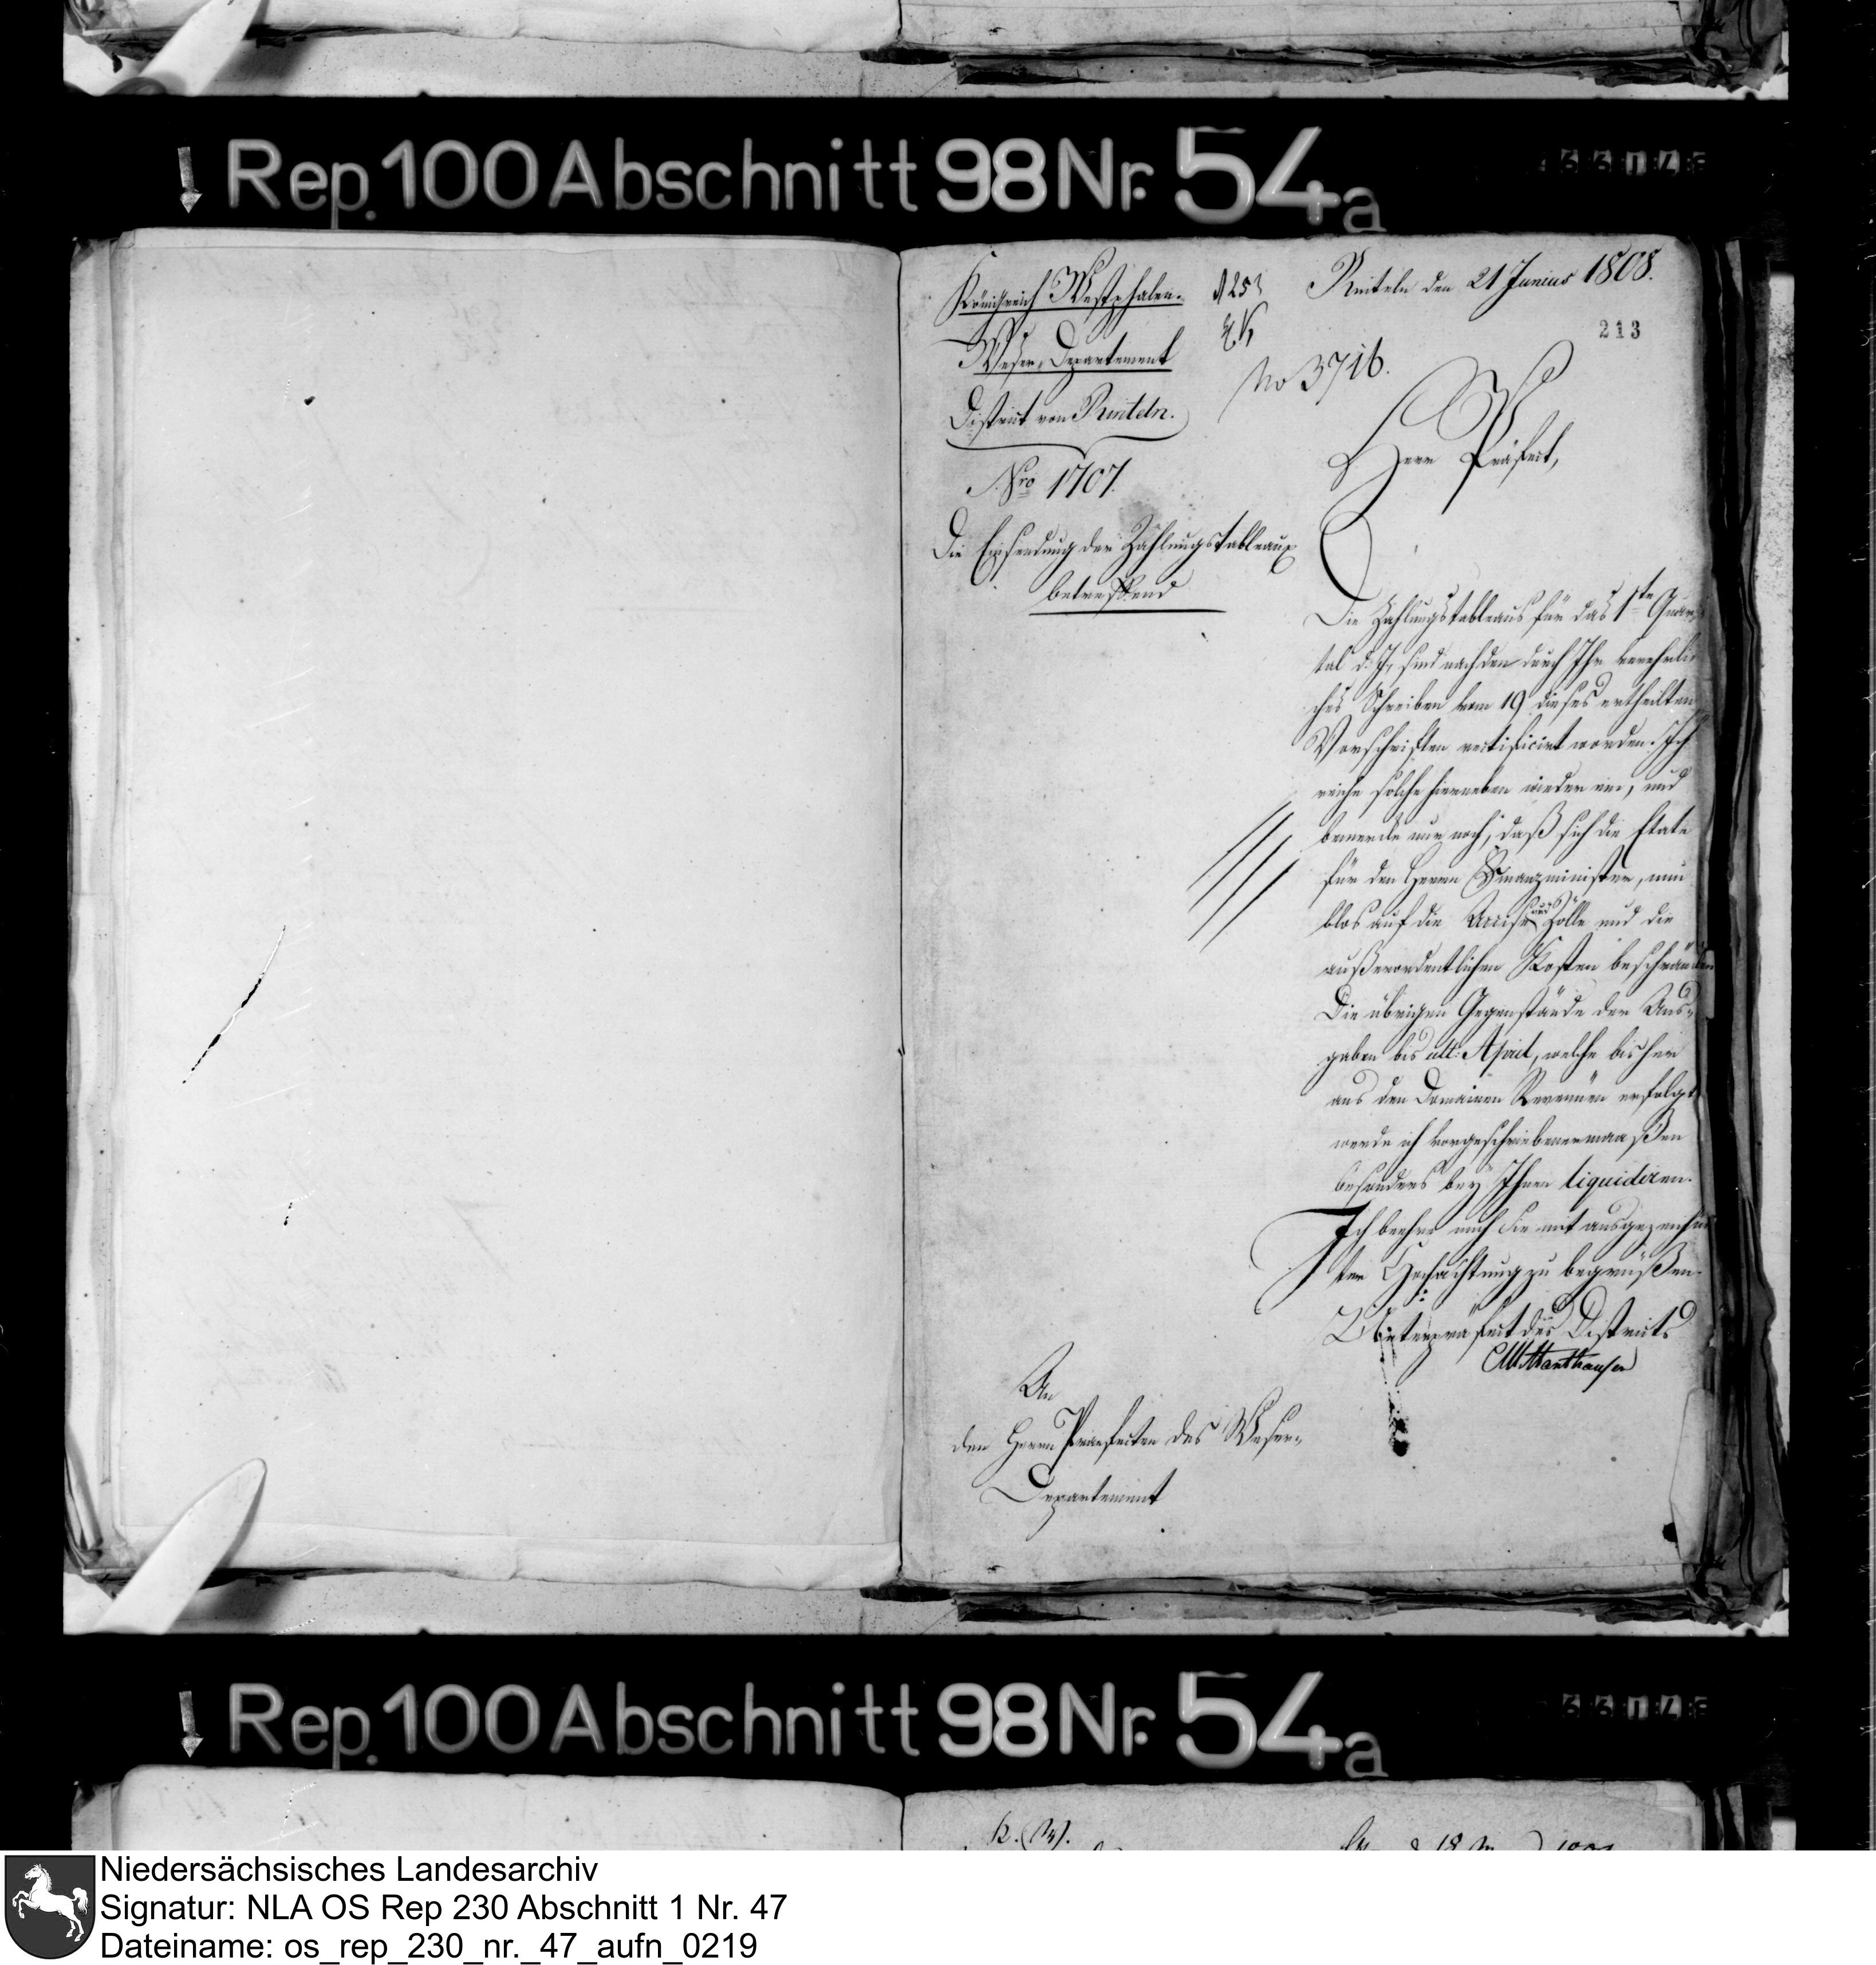 Rep. 100 Abschnitt 98 Nr. 54a
Königreich Westphalen.
Weser-Departement
District von Rinteln.
Nro 1707.
Die Einsendung der Zahlungstableaux
betreffend
Rinteln den 21 Junius 1808.
213
No 3716.
Herr Präfect,
Die Zahlungstableaus für das 1ste Quar-
tal d. J. sind nach den durch Ihr verehrli-
ches Schreiben vom 19 dieses ertheilten
Vorschriften rectificirt worden. Ich
reiche solche hierneben wieder ein, und
bemerke nur noch, daß sich die Etats
für den Herrn Finanzminister, nun
blos auf die Accise und Zölle und die
außerordentlichen Kosten beschränken
Die übrigen Gegenstände der Aus-
gaben bis ult: April, welche bisher
aus den Domainen Revenüen erfolgt
werde ich vorgeschriebenermaaßen
besonders bey Ihnen liquidiren.
Ich beehre mich Sie mit ausgezeichne
ter Hochachtung zu begrüßen.
Unterpräfect des Districts
An
den Herrn Praefecten des Weser-
Departement
Rep. 100 Abschnitt 98 Nr. 54a
Niedersächsisches Landesarchiv
Signatur: NLA OS Rep 230 Abschnitt 1 Nr. 47
Dateiname: os_rep_230_nr._47_aufn_0219